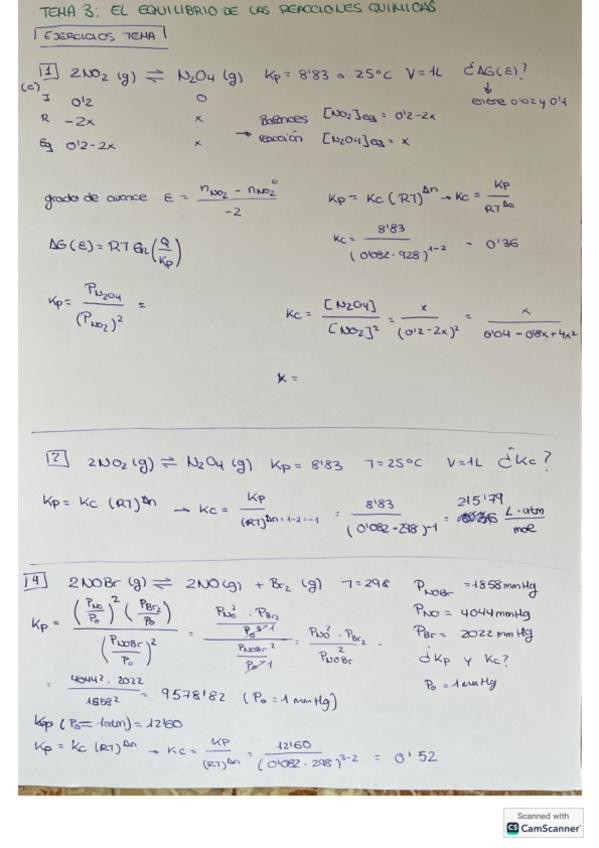 TEMA 3: EL EQUILIBRIO DE LAS REACCIONES QUIMICAS
EJERCICIOS TEMA
1 2NO2 (g) ⇌ N2O4 (g) Kp = 8'83 a 25ºC V = 1L ¿ΔG(E)?
(c) I 0'2 0 ↓ entre 0'02 y 0'1
R -2x x Balances [NO2]eq = 0'2-2x
Eq 0'2-2x x → reacción [N2O4]eq = x
grado de avance E = (nNO2 - nNO2º) / -2 Kp = Kc (RT)^Δn → Kc = Kp / RT^Δn
ΔG(E) = RT ln(Q/Kp) Kc = 8'83 / (0'082 · 928)^1-2 - 0'36
Kp = PN2O4 / (PNO2)^2 = Kc = [N2O4] / [NO2]^2 = x / (0'2-2x)^2 = x / 0'04 - 0'8x + 4x^2
x =
2 2NO2 (g) ⇌ N2O4 (g) Kp = 8'83 T = 25ºC V = 1L ¿Kc?
Kp = Kc (RT)^Δn → Kc = Kp / (RT)^Δn = 1-2 = -1 = 8'83 / (0'082 · 298)^-1 = 215'79 L·atm / mol
4 2NOBr (g) ⇌ 2NO(g) + Br2 (g) T = 298 PNOBr = 1858 mmHg
Kp = (PNO/P0)^2 (PBr2/P0) / (PNOBr/P0)^2 = (PNO^2 · PBr2 / P0^3→1) / (PNOBr^2 / P0^2→1) = PNO^2 · PBr2 / PNOBr^2
PNO = 4044 mmHg
PBr2 = 2022 mmHg
¿Kp y Kc?
P0 = 1 mmHg
= 4044^2 · 2022 / 1858^2 = 9578'82 (P0 = 1 mmHg)
Kp (P0 = 1atm) = 12'60
Kp = Kc (RT)^Δn → Kc = KP / (RT)^Δn = 12'60 / (0'082 · 298)^3-2 = 0'52
Scanned with
CS CamScanner